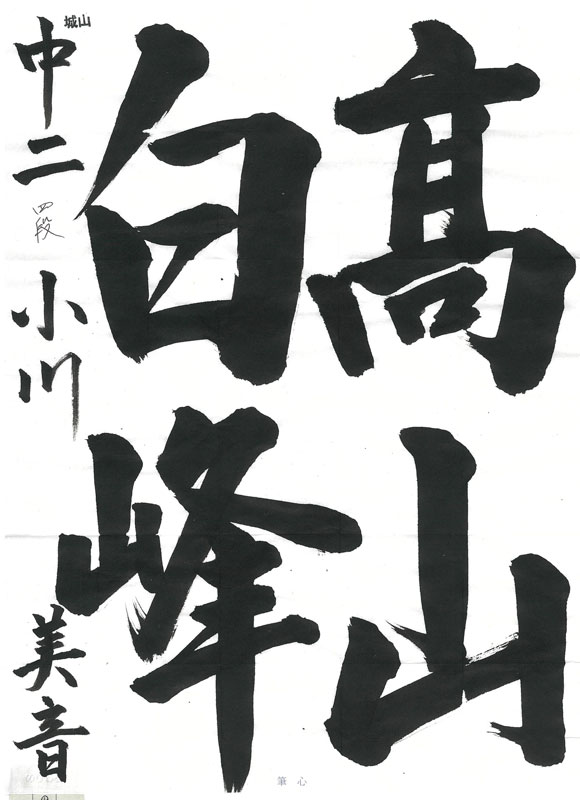 髙山
白峰
城山
中二 四段 小川 美音
筆心